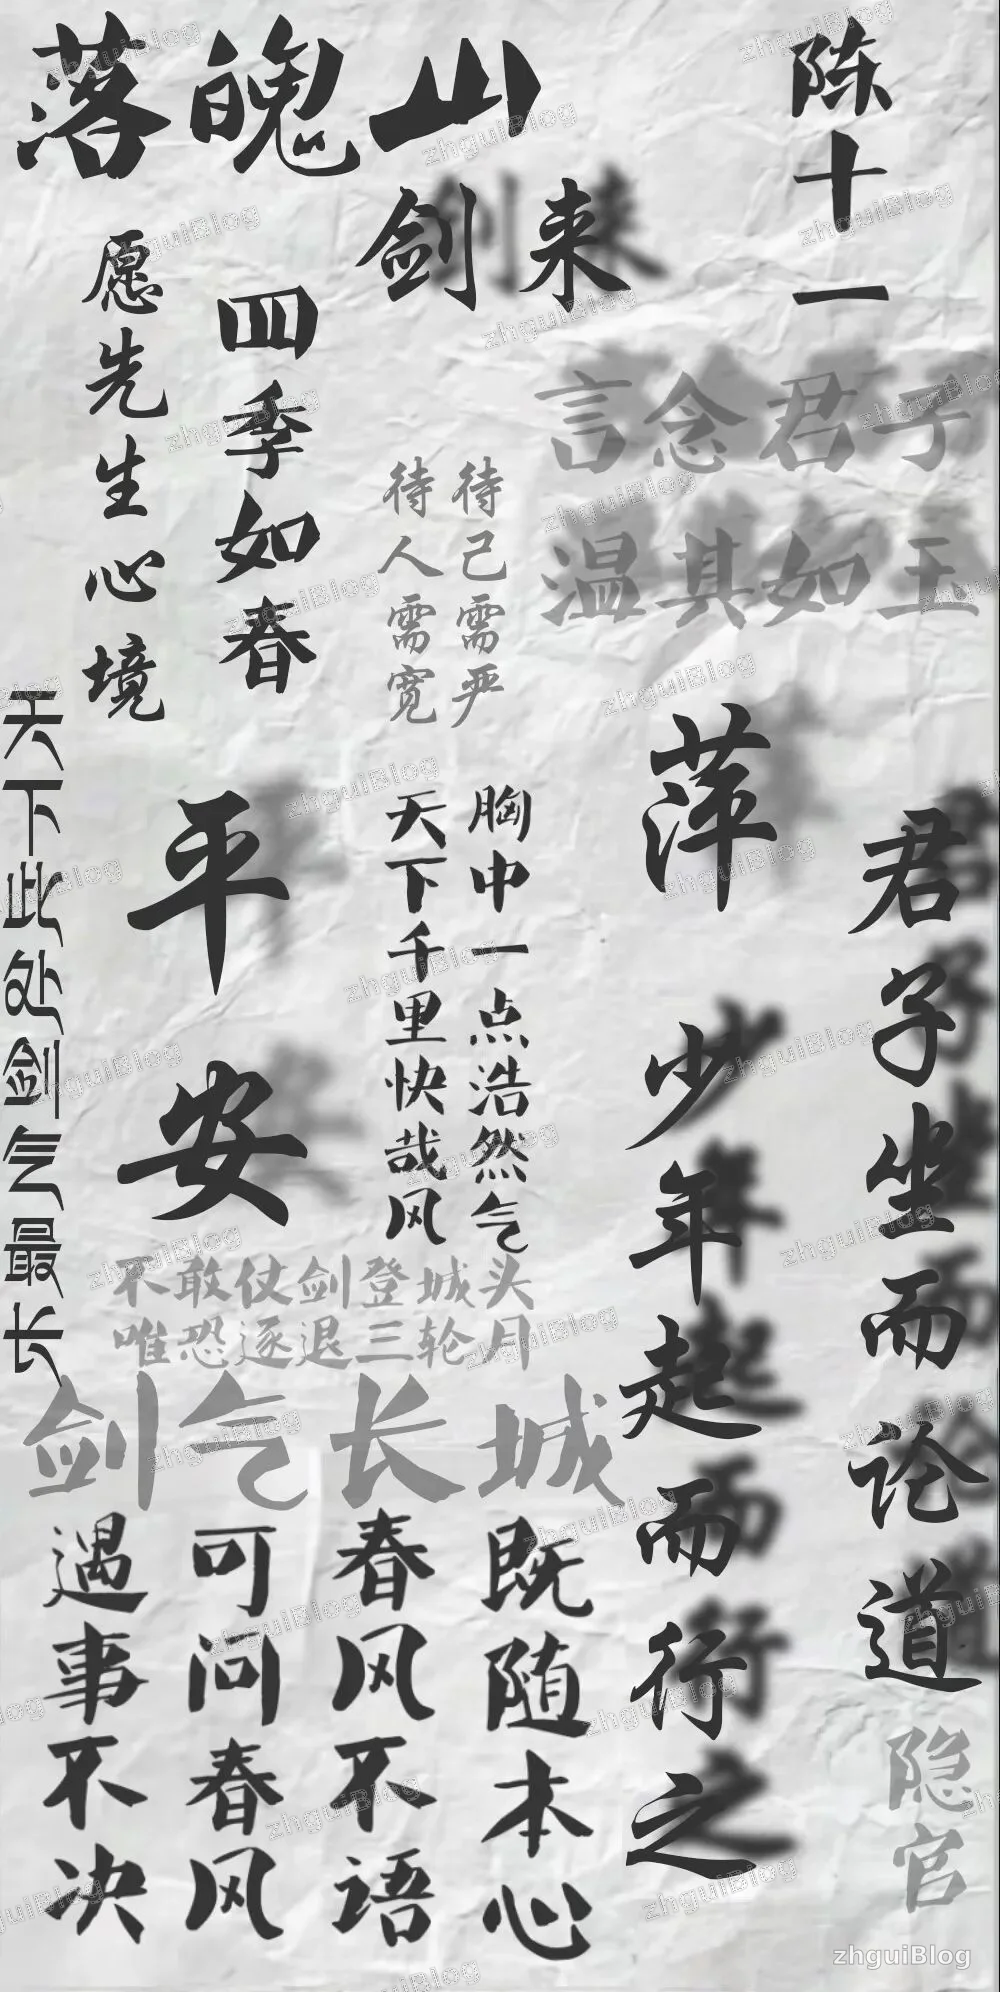 落魄山
剑来
陈十一
愿先生心境
四季如春
言念君子
温其如玉
待己需严
待人需宽
萍
平安
天下此处剑气最长
胸中一点浩然气
天下千里快哉风
君子坐而论道
少年起而行之
不敢仗剑登城头
唯恐逐退三轮月
剑气长城
遇事不决
可问春风
春风不语
既随本心
隐官
zhguiBlog